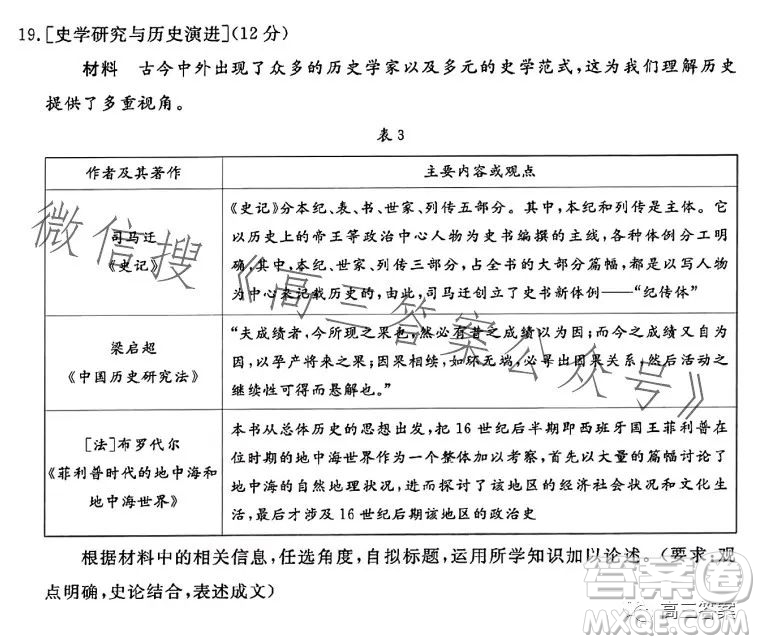 19.[史学研究与历史演进](12分)
材料 古今中外出现了众多的历史学家以及多元的史学范式,这为我们理解历史
提供了多重视角。
表3
作者及其著作
主要内容或观点
司马迁
《史记》
《史记》分本纪、表、书、世家、列传五部分。其中,本纪和列传是主体。它
以历史上的帝王等政治中心人物为史书编撰的主线,各种体例分工明
确,其中,本纪、世家、列传三部分,占全书的大部分篇幅,都是以写人物
为中心来记载历史的,由此,司马迁创立了史书新体例——“纪传体”
梁启超
《中国历史研究法》
“夫成绩者,今所现之果也,然必有昔之成绩以为因;而今之成绩又自为
因,以孕产将来之果;因果相续,如环无端,必寻出因果关系,然后活动之
继续性可得而悬解也。”
[法]布罗代尔
《菲利普时代的地中海和
地中海世界》
本书从总体历史的思想出发,把16世纪后半期即西班牙国王菲利普在
位时期的地中海世界作为一个整体加以考察,首先以大量的篇幅讨论了
地中海的自然地理状况,进而探讨了该地区的经济社会状况和文化生
活,最后才涉及16世纪后期该地区的政治史
根据材料中的相关信息,任选角度,自拟标题,运用所学知识加以论述。(要求:观
点明确,史论结合,表述成文)
微信搜《高三答案公众号》
答案卷
高三答案